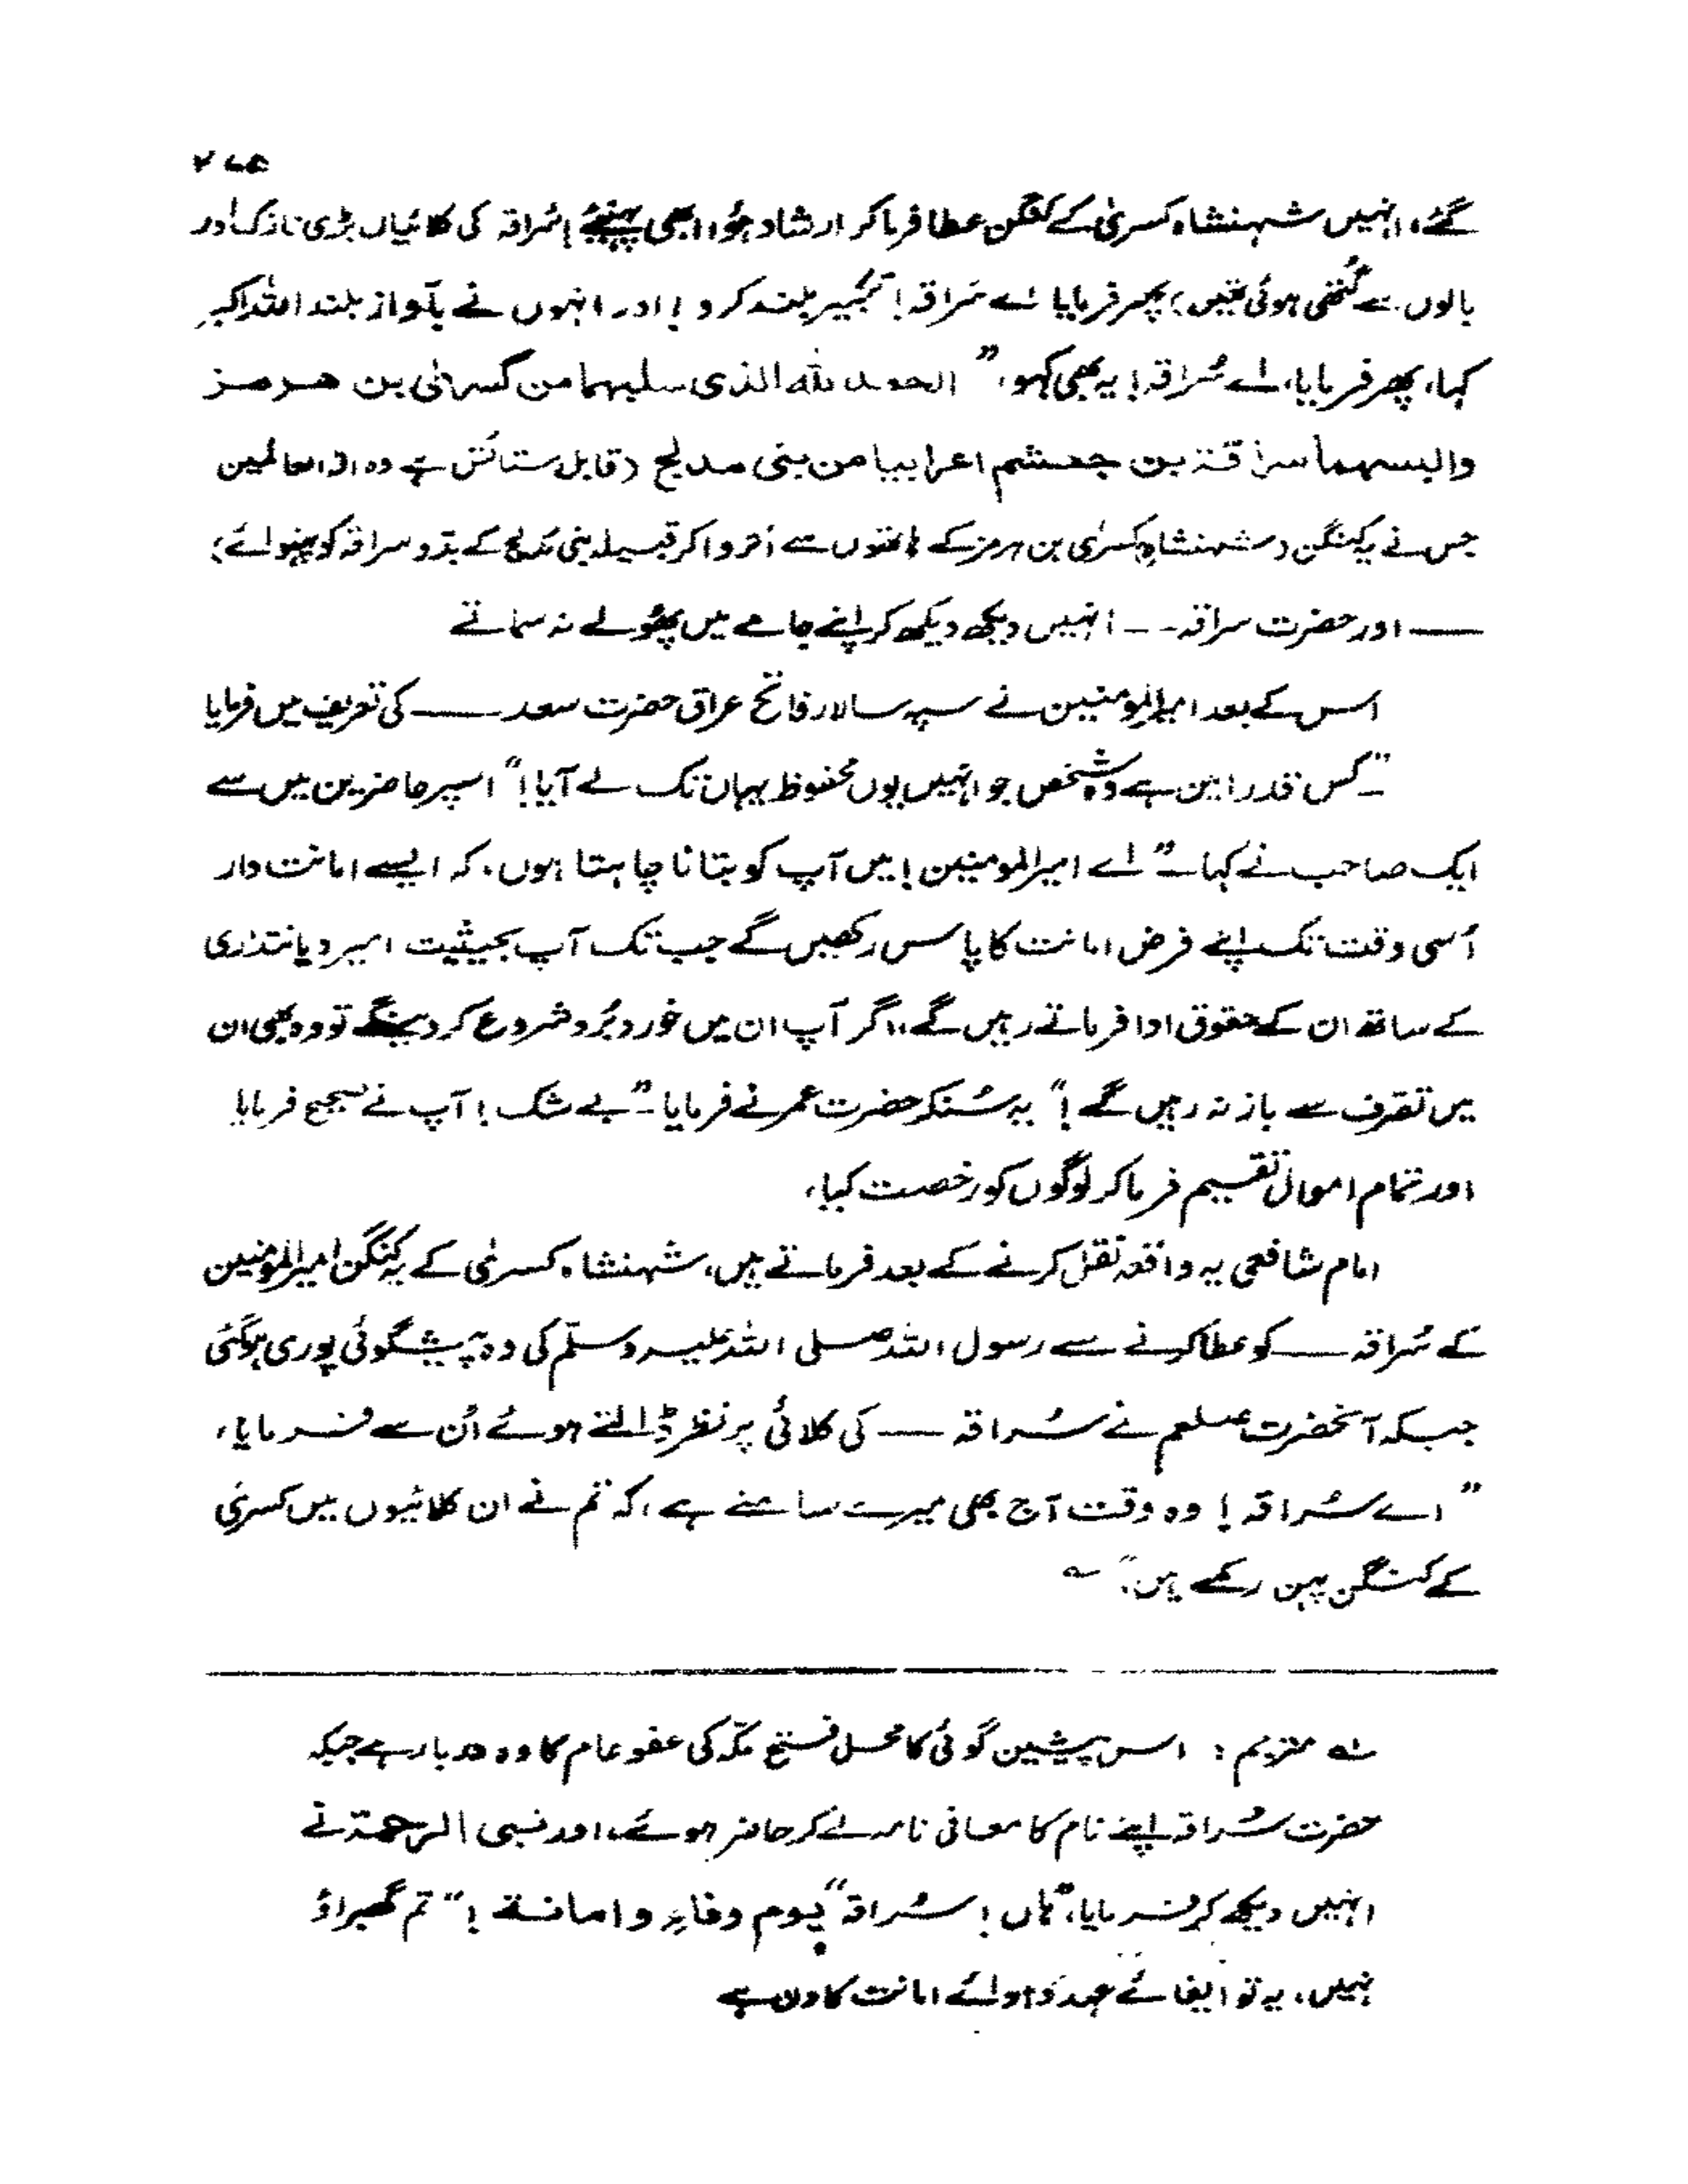 گئے، انہیں شہنشاہ کسریٰ کے کنگن عطا فرما کر ارشاد ہوا، ابھی پہنیئے! سُراقہ کی کلائیاں بڑی نازک اور
بالوں سے گتھی ہوئی تھیں) پھر فرمایا اے سُراقہ! تکبیر بلند کرو! اور انہوں نے بآواز بلند اللہ اکبر
کہا، پھر فرمایا، اے سُراقہ! یہ بھی کہو، ” الحمد للہ الذی سلبہما من کسریٰ بن ھرمز
والبسہما سراقۃ بن جعشم اعرابیا من بنی مدلج (قابل ستائش ہے وہ الہ العالمین
جس نے یہ کنگن شہنشاہ کسریٰ بن ہرمز کے ہاتھوں سے اُتروا کر قبیلہ بنی مُدلج کے بدّو سراقہ کو پہنوائے)
—— اور حضرت سراقہ -- انہیں دیکھ دیکھ کر اپنے جامے میں پھُولے نہ سماتے
اس کے بعد امیرالمومنین نے سپہ سالار فاتح عراق حضرت سعد —— کی تعریف میں فرمایا
”کس قدر امین ہے وہ شخص جو انہیں یوں محفوظ یہاں تک لے آیا!“ اسپر حاضرین میں سے
ایک صاحب نے کہا۔ ” اے امیرالمومنین! میں آپ کو بتانا چاہتا ہوں، کہ ایسے امانت دار
اُسی وقت تک اپنے فرض امانت کا پاس رکھیں گے جب تک آپ بحیثیت امیر دیانتداری
کے ساتھ ان کے حقوق ادا فرماتے رہیں گے، اگر آپ ان میں خورد بُرد شروع کر دینگے تو وہ بھی ان
میں تصرف سے باز نہ رہیں گے!“ یہ سُنکر حضرت عمر نے فرمایا۔ ”بے شک! آپ نے صحیح فرمایا
اور تمام اموال تقسیم فرما کر لوگوں کو رخصت کیا،
امام شافعی یہ واقعہ نقل کرنے کے بعد فرماتے ہیں، شہنشاہ کسریٰ کے یہ کنگن امیرالمومنین
کے سُراقہ —— کو عطا کرنے سے رسول اللہ صلی اللہ علیہ وسلّم کی وہ پیشگوئی پوری ہوگئی
جبکہ آنحضرت صلعم نے سُراقہ —— کی کلائی پر نظر ڈالتے ہوئے اُن سے فرمایا،
” اے سُراقہ! وہ وقت آج بھی میرے سامنے ہے، کہ تم نے ان کلائیوں میں کسریٰ
کے کنگن پہن رکھے ہیں“ ؎
؎ مترجم : اس پیشین گوئی کا محل فتح مکّہ کی عفو عام کا وہ دربار ہے جبکہ
حضرت سُراقہ اپنے نام کا معافی نامہ لے کر حاضر ہوئے، اور نبی الرحمۃ نے
انہیں دیکھ کر فرمایا، ہاں! سُراقہ ”یوم وفاءٍ وامانۃ!“ تم گھبراؤ
نہیں، یہ تو ایفائے عہد و ادائے امانت کا دن ہے